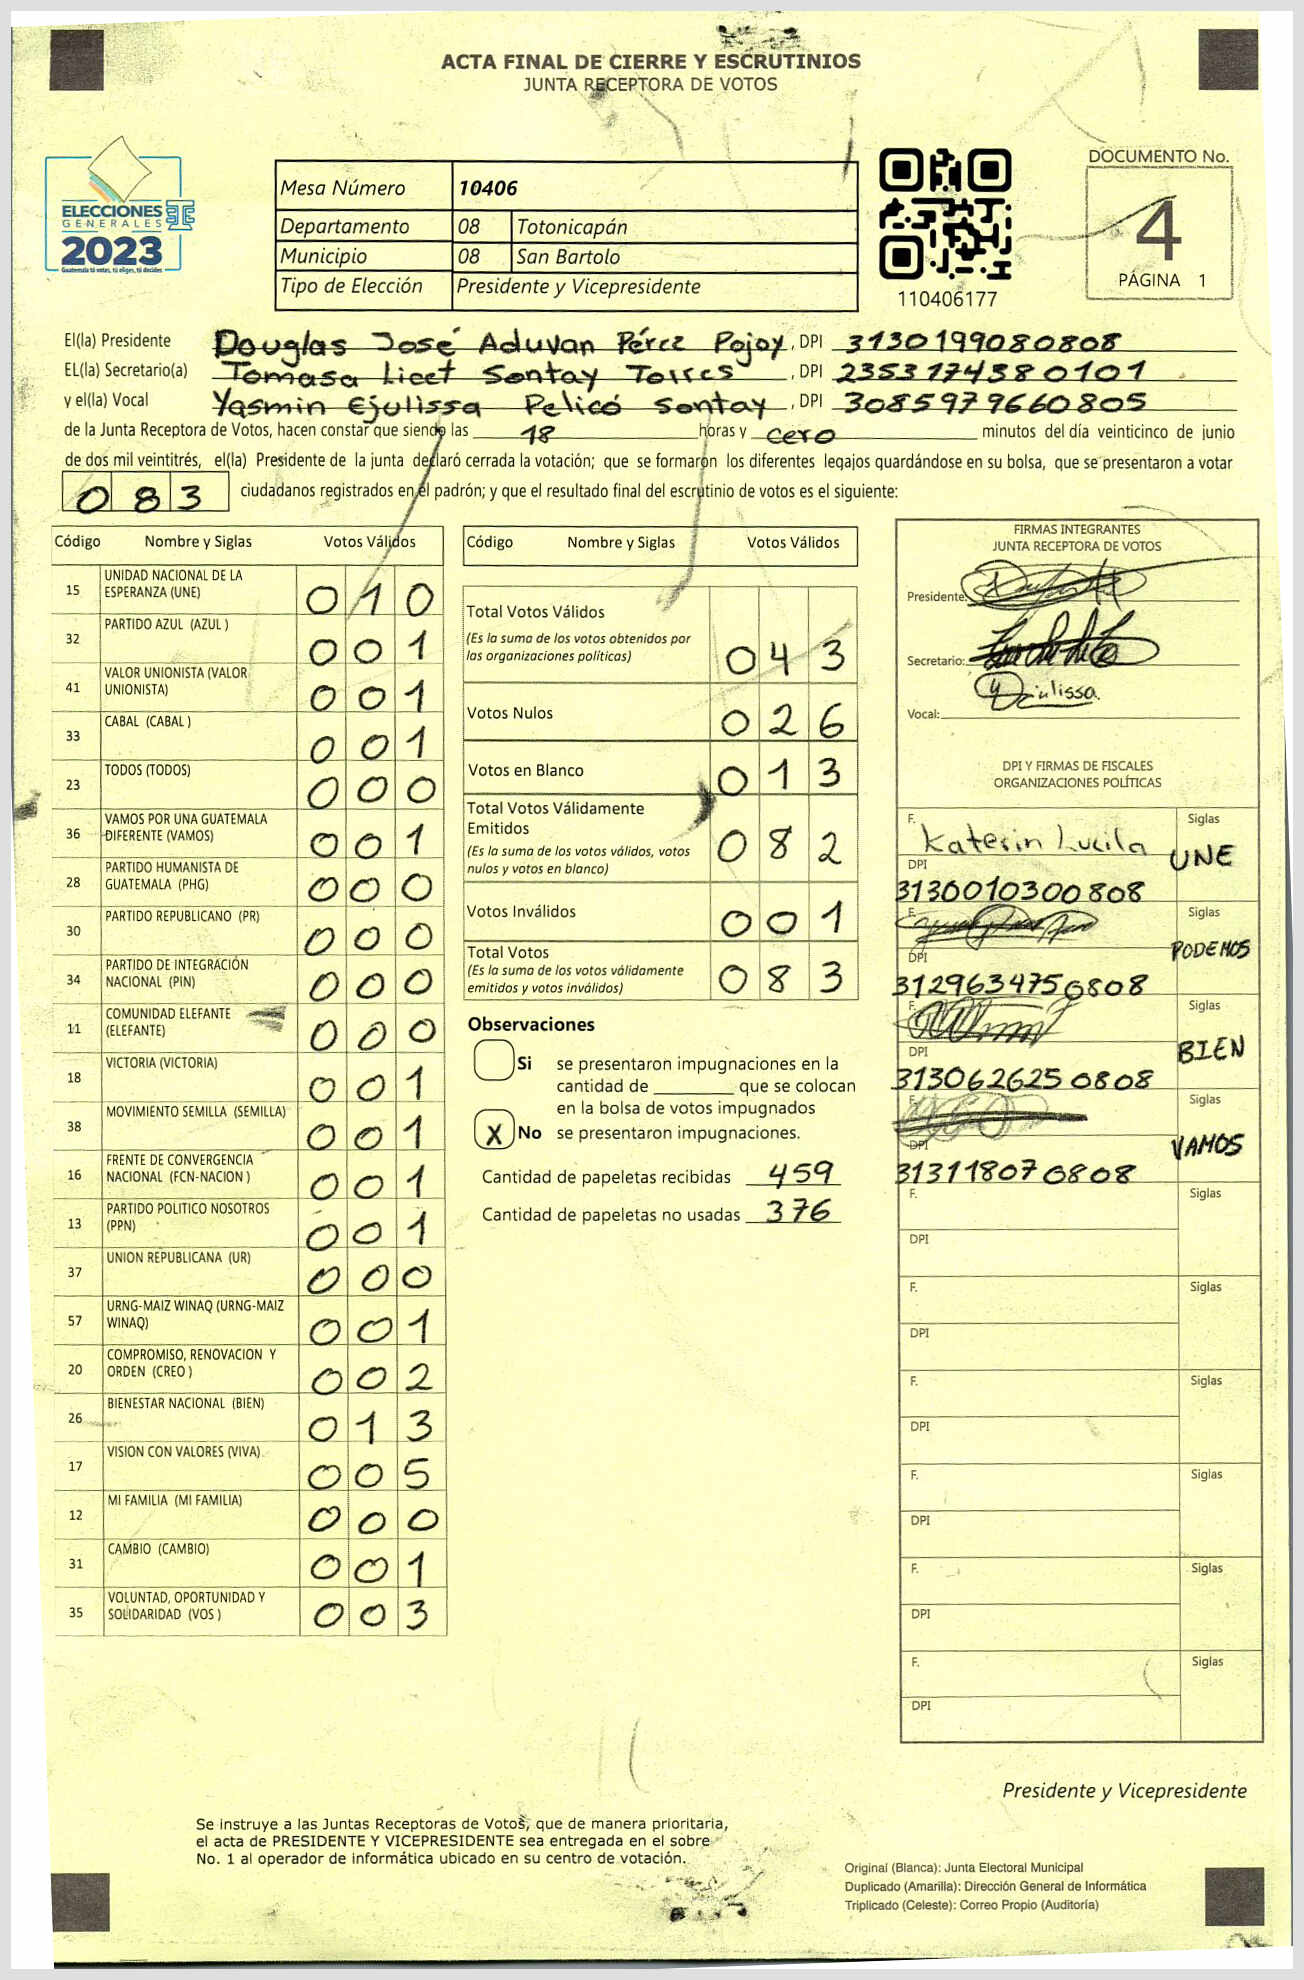 ACTA FINAL DE CIERRE Y ESCRUTINIOS
JUNTA RECEPTORA DE VOTOS
ELECCIONES
GENERALES
2023
Guatemala tú votas, tú eliges, tú decides
Mesa Número 10406
Departamento 08 Totonicapán
Municipio 08 San Bartolo
Tipo de Elección Presidente y Vicepresidente
110406177
DOCUMENTO No.
4
PÁGINA 1
El(la) Presidente Douglas José Aduvan Pérez Pojoy, DPI 3130199080808
EL(la) Secretario(a) Tomasa Licet Sontay Torres, DPI 2353174380101
y el(la) Vocal Yasmin Ejulissa Pelicó Sontay, DPI 3085979660805
de la Junta Receptora de Votos, hacen constar que siendo las 18 horas y cero minutos del día veinticinco de junio
de dos mil veintitrés, el(la) Presidente de la junta declaró cerrada la votación; que se formaron los diferentes legajos guardándose en su bolsa, que se presentaron a votar
083 ciudadanos registrados en el padrón; y que el resultado final del escrutinio de votos es el siguiente:
Código Nombre y Siglas Votos Válidos
15 UNIDAD NACIONAL DE LA
ESPERANZA (UNE) 010
32 PARTIDO AZUL (AZUL ) 001
41 VALOR UNIONISTA (VALOR
UNIONISTA) 001
33 CABAL (CABAL ) 001
23 TODOS (TODOS) 000
36 VAMOS POR UNA GUATEMALA
DIFERENTE (VAMOS) 001
28 PARTIDO HUMANISTA DE
GUATEMALA (PHG) 000
30 PARTIDO REPUBLICANO (PR) 000
34 PARTIDO DE INTEGRACIÓN
NACIONAL (PIN) 000
11 COMUNIDAD ELEFANTE
(ELEFANTE) 000
18 VICTORIA (VICTORIA) 001
38 MOVIMIENTO SEMILLA (SEMILLA) 001
16 FRENTE DE CONVERGENCIA
NACIONAL (FCN-NACION ) 001
13 PARTIDO POLITICO NOSOTROS
(PPN) 001
37 UNION REPUBLICANA (UR) 000
57 URNG-MAIZ WINAQ (URNG-MAIZ
WINAQ) 001
20 COMPROMISO, RENOVACION Y
ORDEN (CREO ) 002
26 BIENESTAR NACIONAL (BIEN) 013
17 VISION CON VALORES (VIVA) 005
12 MI FAMILIA (MI FAMILIA) 000
31 CAMBIO (CAMBIO) 001
35 VOLUNTAD, OPORTUNIDAD Y
SOLIDARIDAD (VOS ) 003
Código Nombre y Siglas Votos Válidos
Total Votos Válidos
(Es la suma de los votos obtenidos por
las organizaciones políticas) 043
Votos Nulos 026
Votos en Blanco 013
Total Votos Válidamente
Emitidos
(Es la suma de los votos válidos, votos
nulos y votos en blanco) 082
Votos Inválidos 001
Total Votos
(Es la suma de los votos válidamente
emitidos y votos inválidos) 083
Observaciones
Si se presentaron impugnaciones en la
cantidad de ________ que se colocan
en la bolsa de votos impugnados
X No se presentaron impugnaciones.
Cantidad de papeletas recibidas 459
Cantidad de papeletas no usadas 376
FIRMAS INTEGRANTES
JUNTA RECEPTORA DE VOTOS
Presidente:
Secretario:
Vocal:
DPI Y FIRMAS DE FISCALES
ORGANIZACIONES POLÍTICAS
F. Katerin Lucila Siglas
UNE
DPI
3130010300808
F. Siglas
PODEMOS
DPI
3129634750808
F. Siglas
BIEN
DPI
3130626250808
F. Siglas
VAMOS
DPI
313118070808
F. Siglas
DPI
F. Siglas
DPI
F. Siglas
DPI
F. Siglas
DPI
F. Siglas
DPI
F. Siglas
DPI
Presidente y Vicepresidente
Se instruye a las Juntas Receptoras de Votos, que de manera prioritaria,
el acta de PRESIDENTE Y VICEPRESIDENTE sea entregada en el sobre
No. 1 al operador de informática ubicado en su centro de votación.
Original (Blanca): Junta Electoral Municipal
Duplicado (Amarilla): Dirección General de Informática
Triplicado (Celeste): Correo Propio (Auditoría)